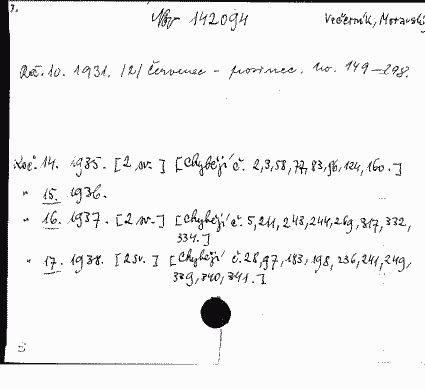 7.
142094
Večerník, Moravský
Roč. 10. 1931. /2/ červenec - prosinec. no. 149-298.
Roč. 14. 1935. [2 sv.] [Chybějí č. 2,3,58,77,83,96,124,160.]
" 15. 1936.
" 16. 1937. [2 sv.] [Chybějí č. 5,211,243,244,269,317,332,
334.]
" 17. 1938. [2 sv.] [Chybějí č. 28,97,183,198,236,241,249,
339,340,341.]